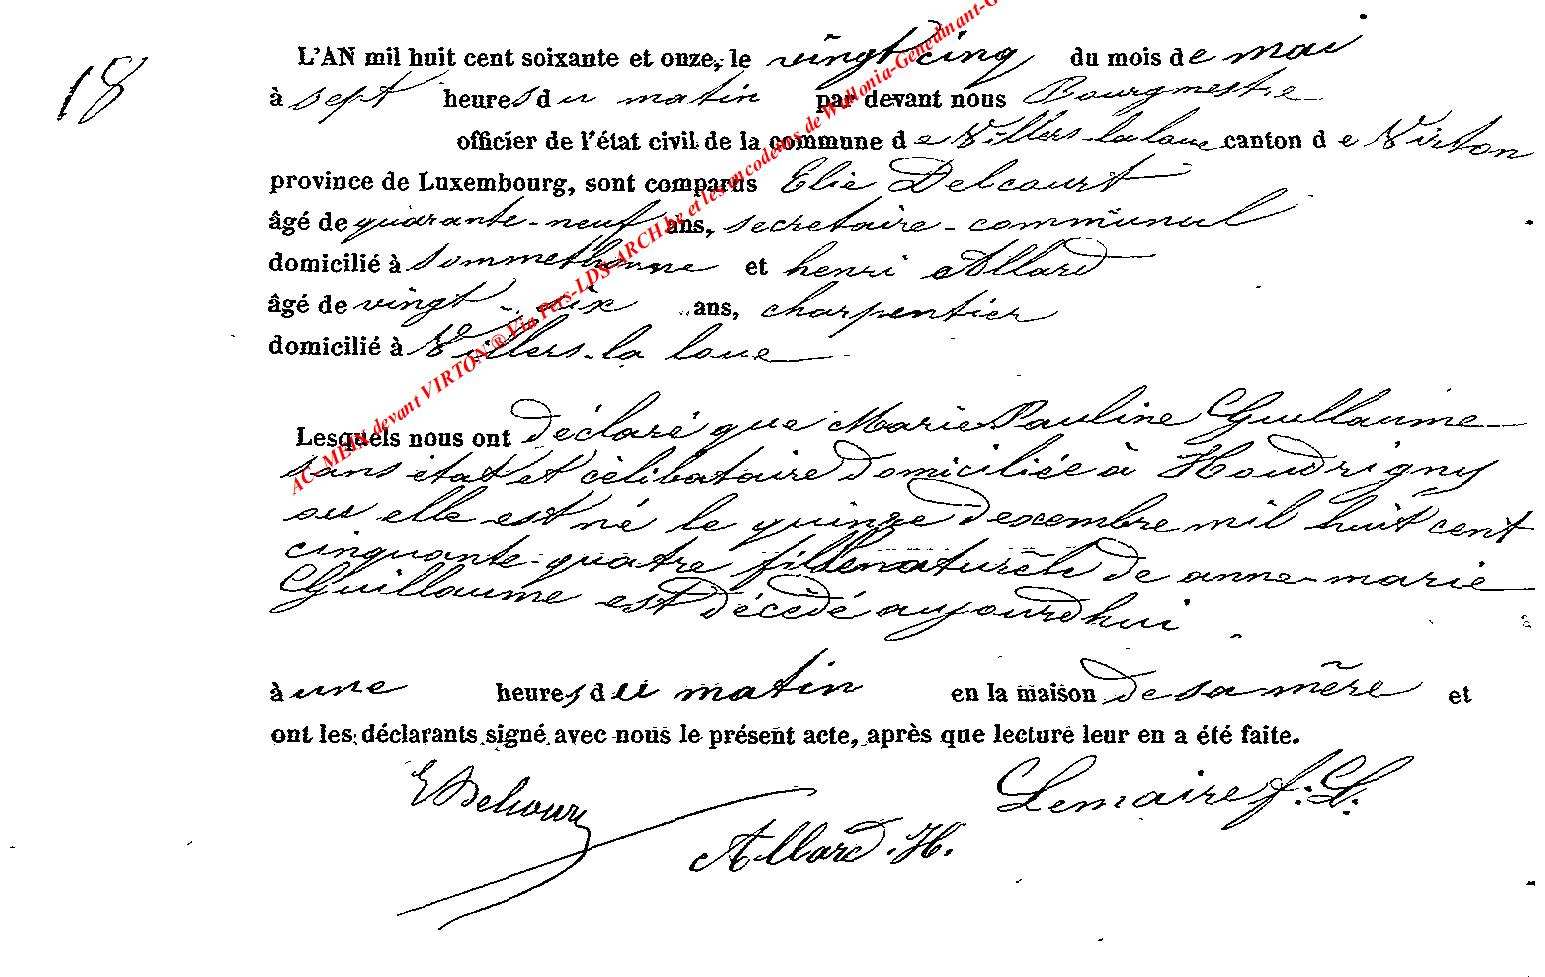 18
L'AN mil huit cent soixante et onze, le vingt cinq du mois de mai
à sept heures du matin par devant nous Bourgmestre
officier de l'état civil de la commune de Villers-la loue canton de Virton
province de Luxembourg, sont comparus Elie Delcourt
âgé de quarante-neuf ans, secretaire-communal
domicilié à Sommethonne et henri Allard
âgé de vingt-six ans, charpentier
domicilié à Villers-la loue
Lesquels nous ont déclaré que Marie Pauline Guillaume
sans état et célibataire domiciliée à Houdrigny
ou elle est né le quinze dexcembre mil huit cent
cinquante-quatre fille naturele de anne-marie
Guillaume est décédé aujourdhui
à une heures du matin en la maison de sa mère et
ont les déclarants signé avec nous le présent acte, après que lecture leur en a été faite.
E Delcourt
Lemaire f: L:
Allard. H.
AC-MEIX devant VIRTON ® Via Pers-LDS-ARCH.be et les encodeurs de Wallonia-Genedinant-G